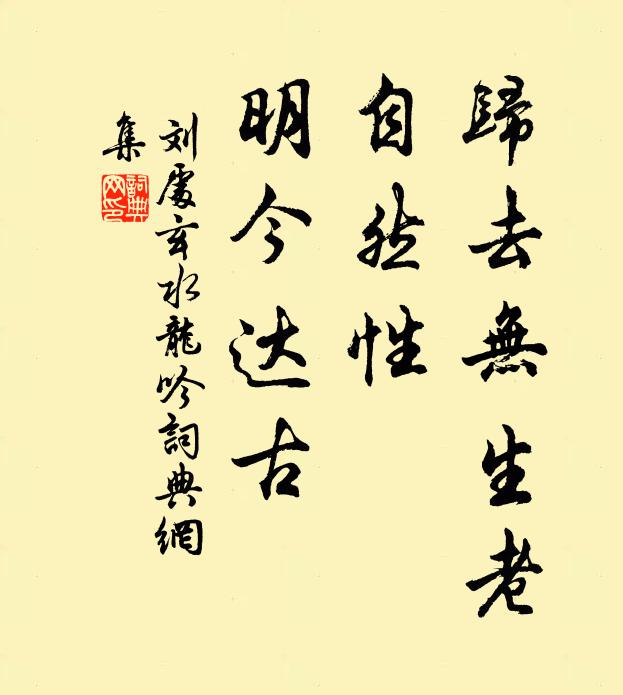 歸去無生老
自然性
明今达古
刘處玄水龍吟詞典網
集
詞典網印